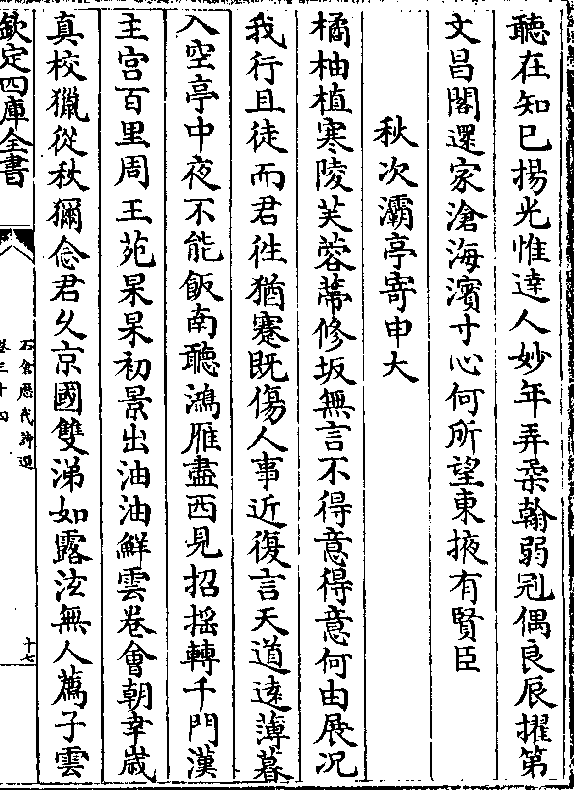 聽在知已揚光惟達人妙年弄柔翰弱冠偶良辰擢第
文昌閣還家滄海濱寸心何所望東掖有賢臣
秋次灞亭寄申大
橘柚植寒陵芙蓉蒂修坂無言不得意得意何由展况
我行且徒而君往猶蹇既傷人事近復言天道逺薄暮
入空亭中夜不能飯南聽鴻雁盡西見招揺轉千門漢
主宫百里周王苑杲杲初景出油油鮮雲卷會朝幸嵗
真校獵從秋獮念君乆京國雙涕如露泫無人薦子雲
欽定四庫全書
石倉歴代詩選
卷三十四
十七